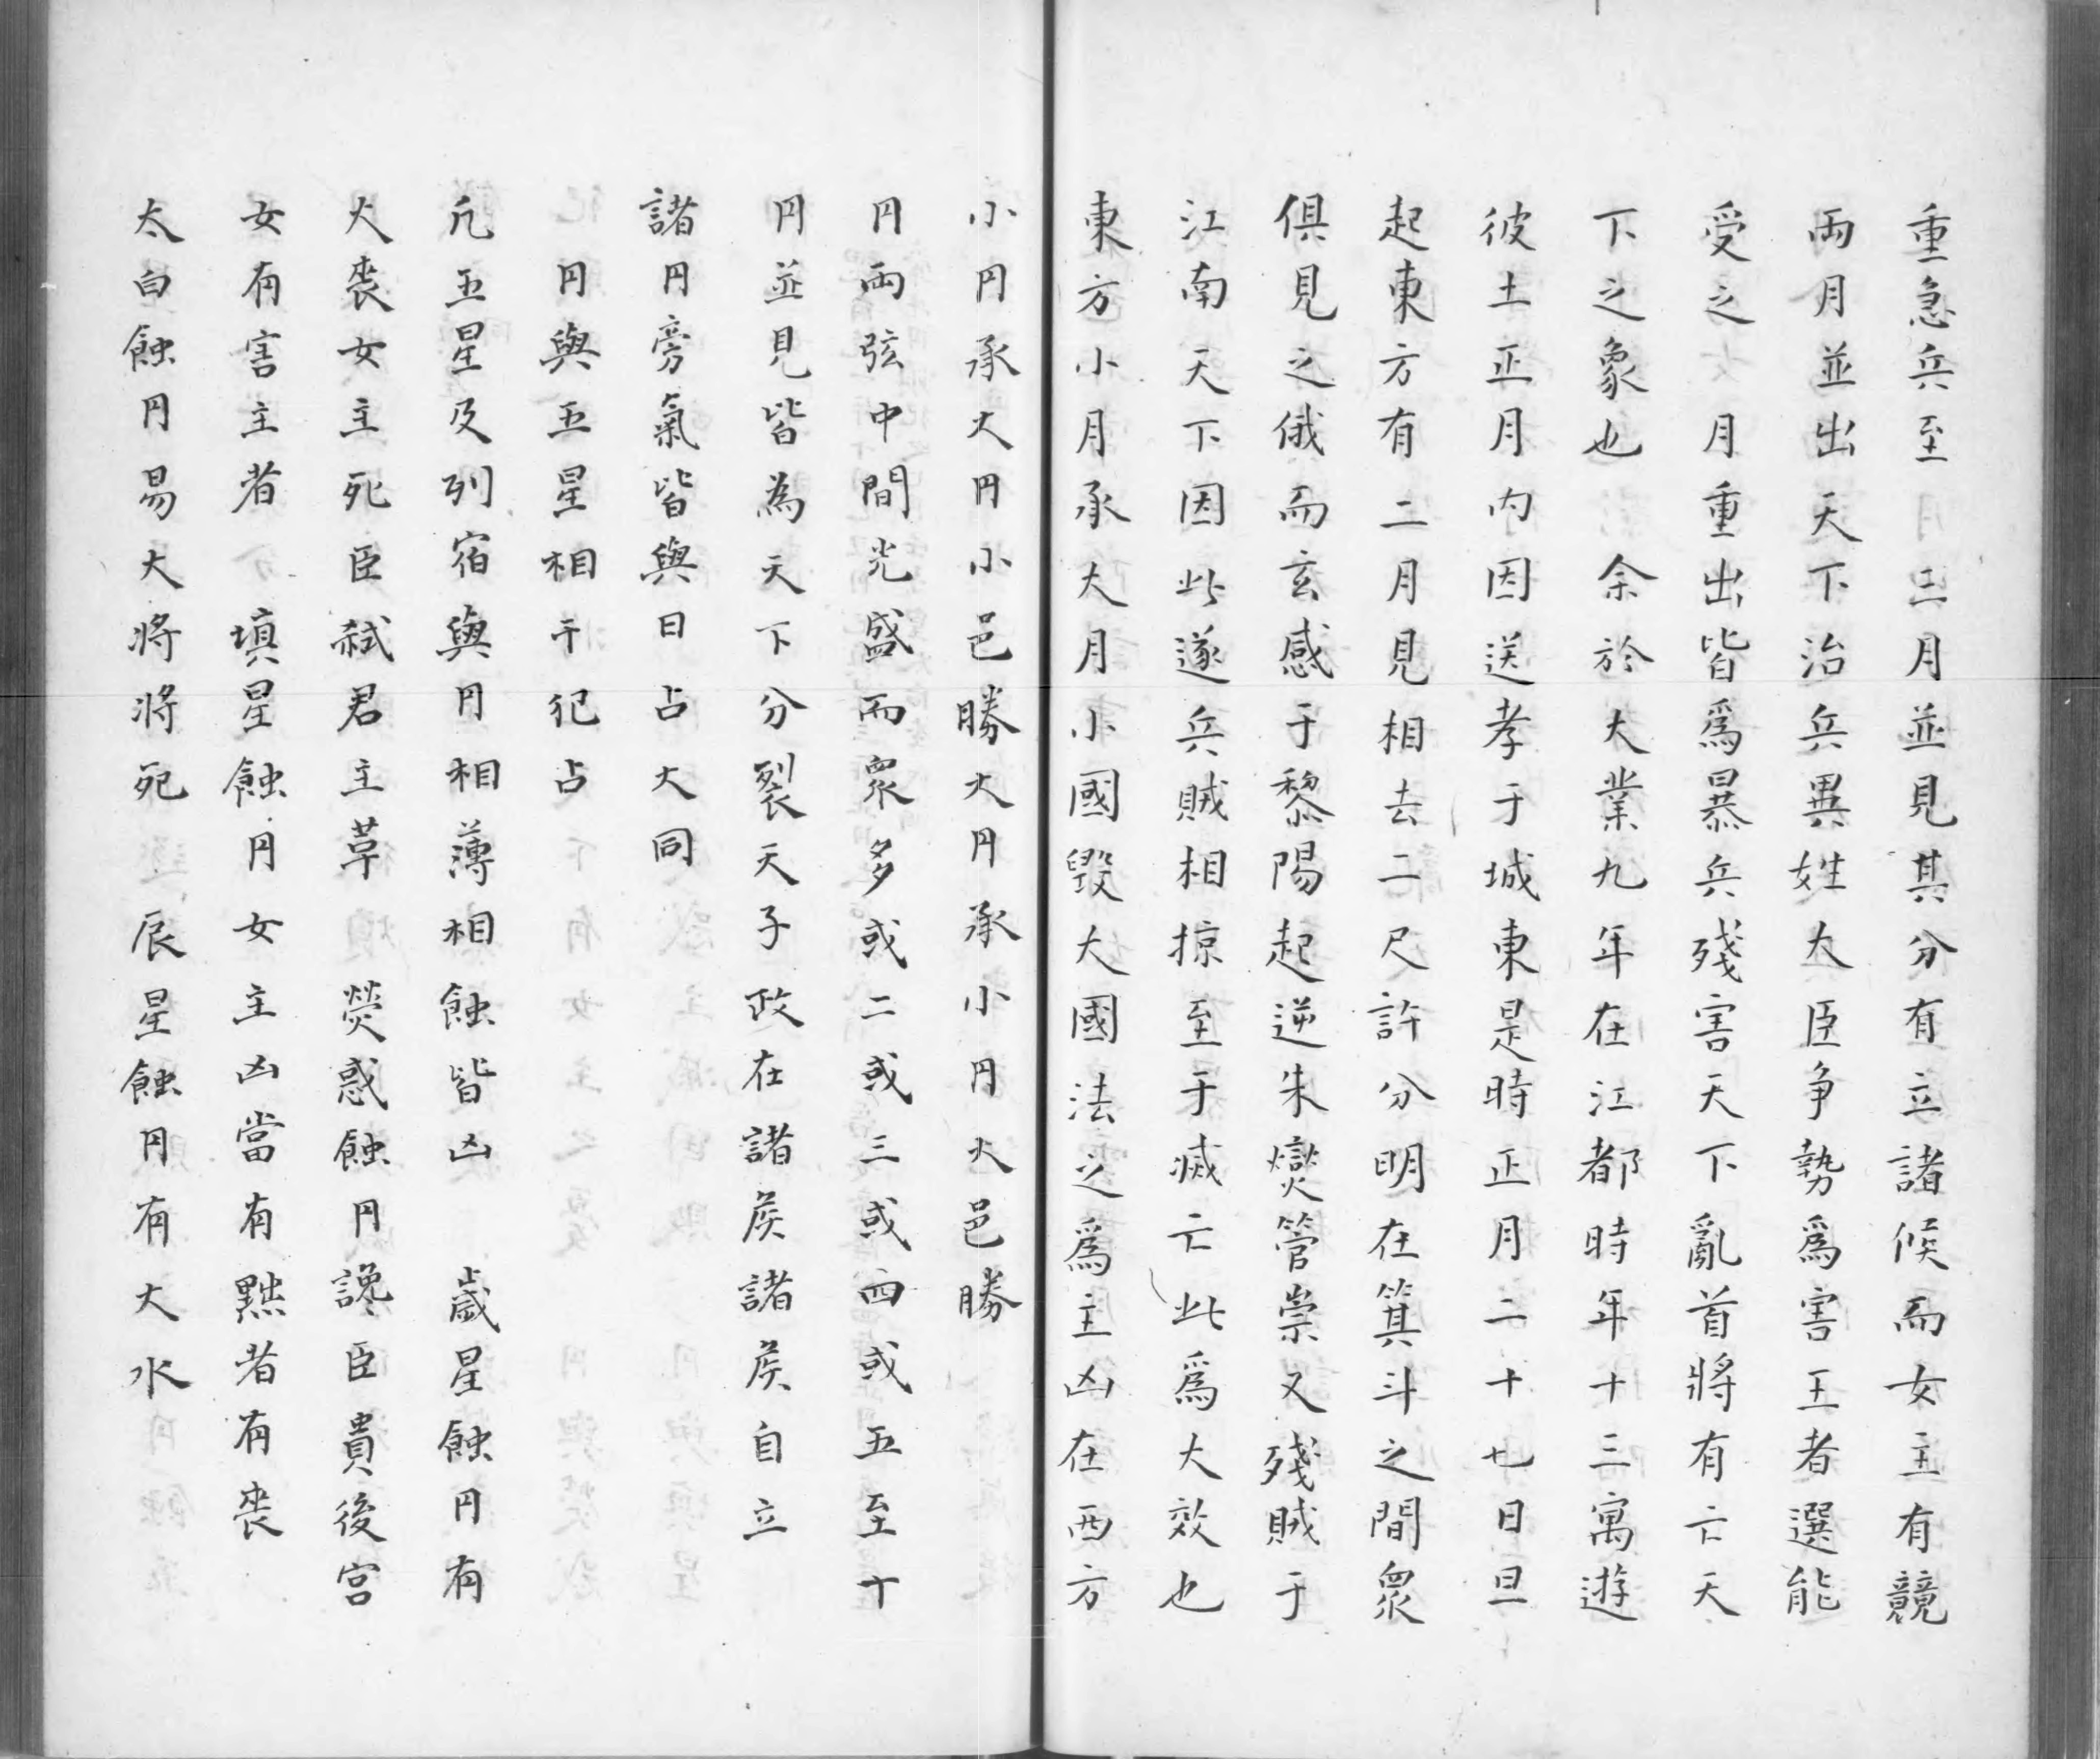 重急兵至 二月並見其分有立諸候而女主有競
兩月並出天下治兵異姓大臣爭勢爲害王者選能
受之 月重出皆爲暴兵殘害天下亂首將有亡天
下之象也 余於大業九年在江都時年十三寓遊
彼土正月內因送孝于城東是時正月二十七日旦
起東方有二月見相去二尺許分明在箕斗之間衆
俱見之俄而玄感于黎陽起逆朱燮管崇又殘賊于
江南天下因此遂兵賊相掠至于滅亡此爲大效也
東方小月承大月小國毀大國法之爲主凶在西方
小円承大円小邑勝大円承小円大邑勝
円兩弦中間光盛而衆多或二或三或四或五至十
円並見皆為天下分裂天子政在諸侯諸侯自立
諸円旁氣皆與日占大同
円與五星相干犯占
凡五星及列宿與円相薄相蝕皆凶 歲星蝕円有
大喪女主死臣弑君主草 熒惑蝕円讒臣貴後宮
女有害主者 填星蝕円女主凶當有黜者有喪
太白蝕円易大將將死 辰星蝕円有大水